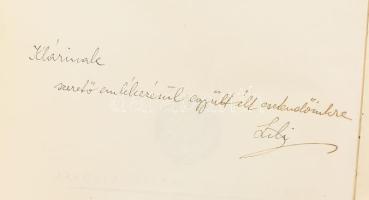 Klárinak
szerető emlékezésül együtt élt esztendőinkre
Lili